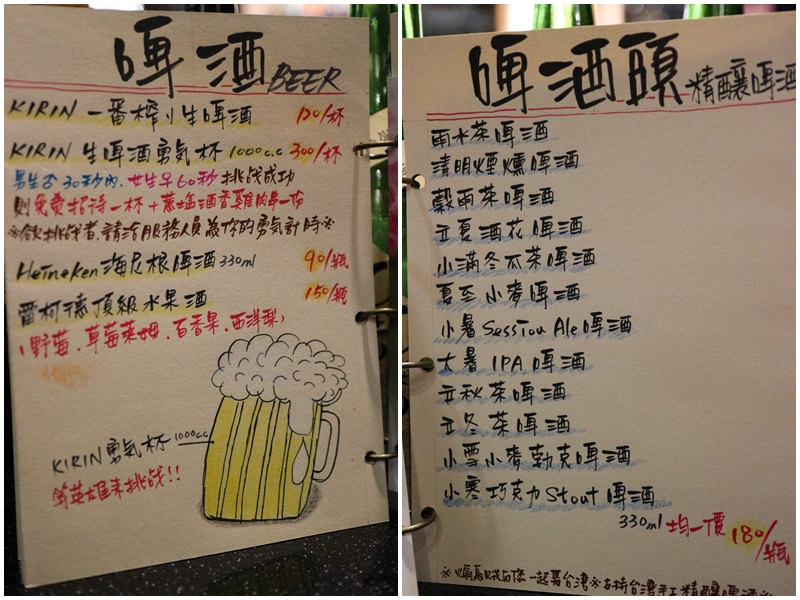 啤酒 BEER
KIRIN 一番榨り生啤酒 120/杯
KIRIN 生啤酒勇氣杯 1000c.c 300/杯
男生含30秒內.女生早60秒挑战成功
則免費招待一杯+蔥塩酒香雞肉串一份
※欲挑战者,請洽服務人員為你的勇氣計時※
Heineken 海尼根啤酒 330ml 90/瓶
雷柯德頂級水果酒 150/瓶
(野莓.草莓萊姆.百香果.西洋梨)
KIRIN 勇氣杯 1000c.c
等英雄來挑战!!
啤酒頭 精釀啤酒
雨水茶啤酒
清明煙燻啤酒
穀雨茶啤酒
立夏酒花啤酒
小滿冬瓜茶啤酒
夏至小麥啤酒
小暑 Session Ale 啤酒
大暑 IPA 啤酒
立秋茶啤酒
立冬茶啤酒
小雪小麥勃克啤酒
小寒巧克力 Stout 啤酒
330ml 均一價 180/瓶
與您一起喜台灣※支持台灣手工精釀啤酒※